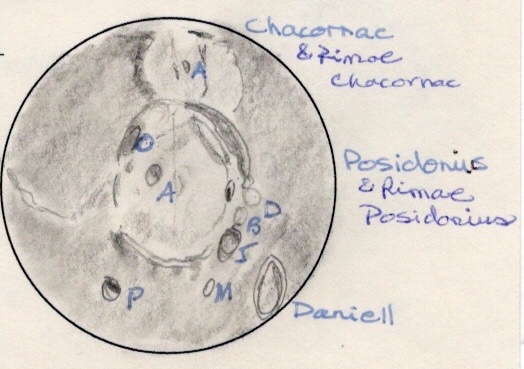 Chacornac
& Rimae
Chacornac
A
O
Posidonius
& Rimae
Posidonius
A
D
B
J
P
M
Daniell